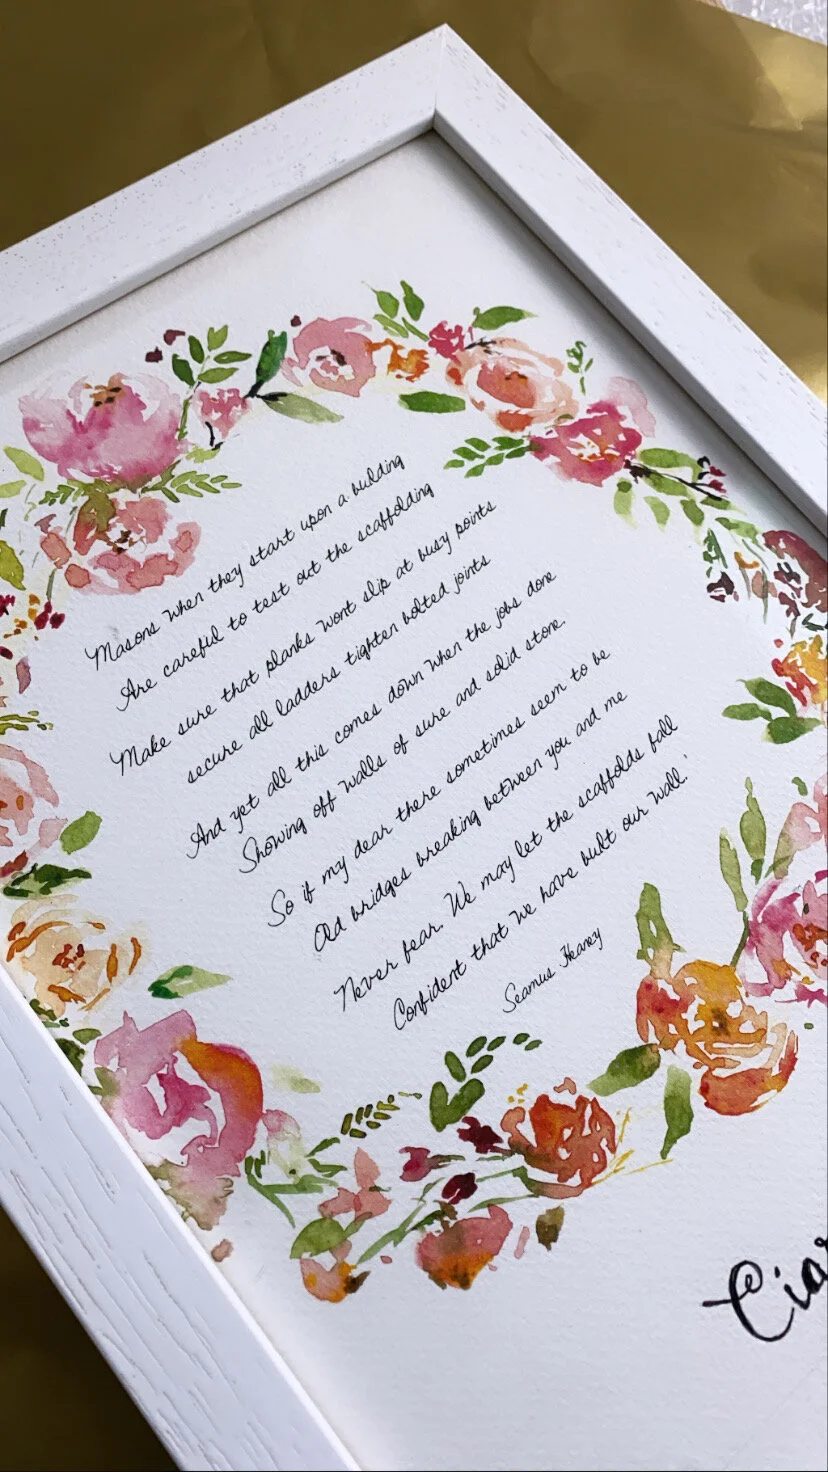 Masons when they start upon a building
Are careful to test out the scaffolding
Make sure that planks wont slip at busy points
secure all ladders tighten bolted joints
And yet all this comes down when the jobs done
Showing off walls of sure and solid stone.
So if my dear there sometimes seem to be
Old bridges breaking between you and me
Never fear. We may let the scaffolds fall
Confident that we have built our wall.'
Seamus Heaney